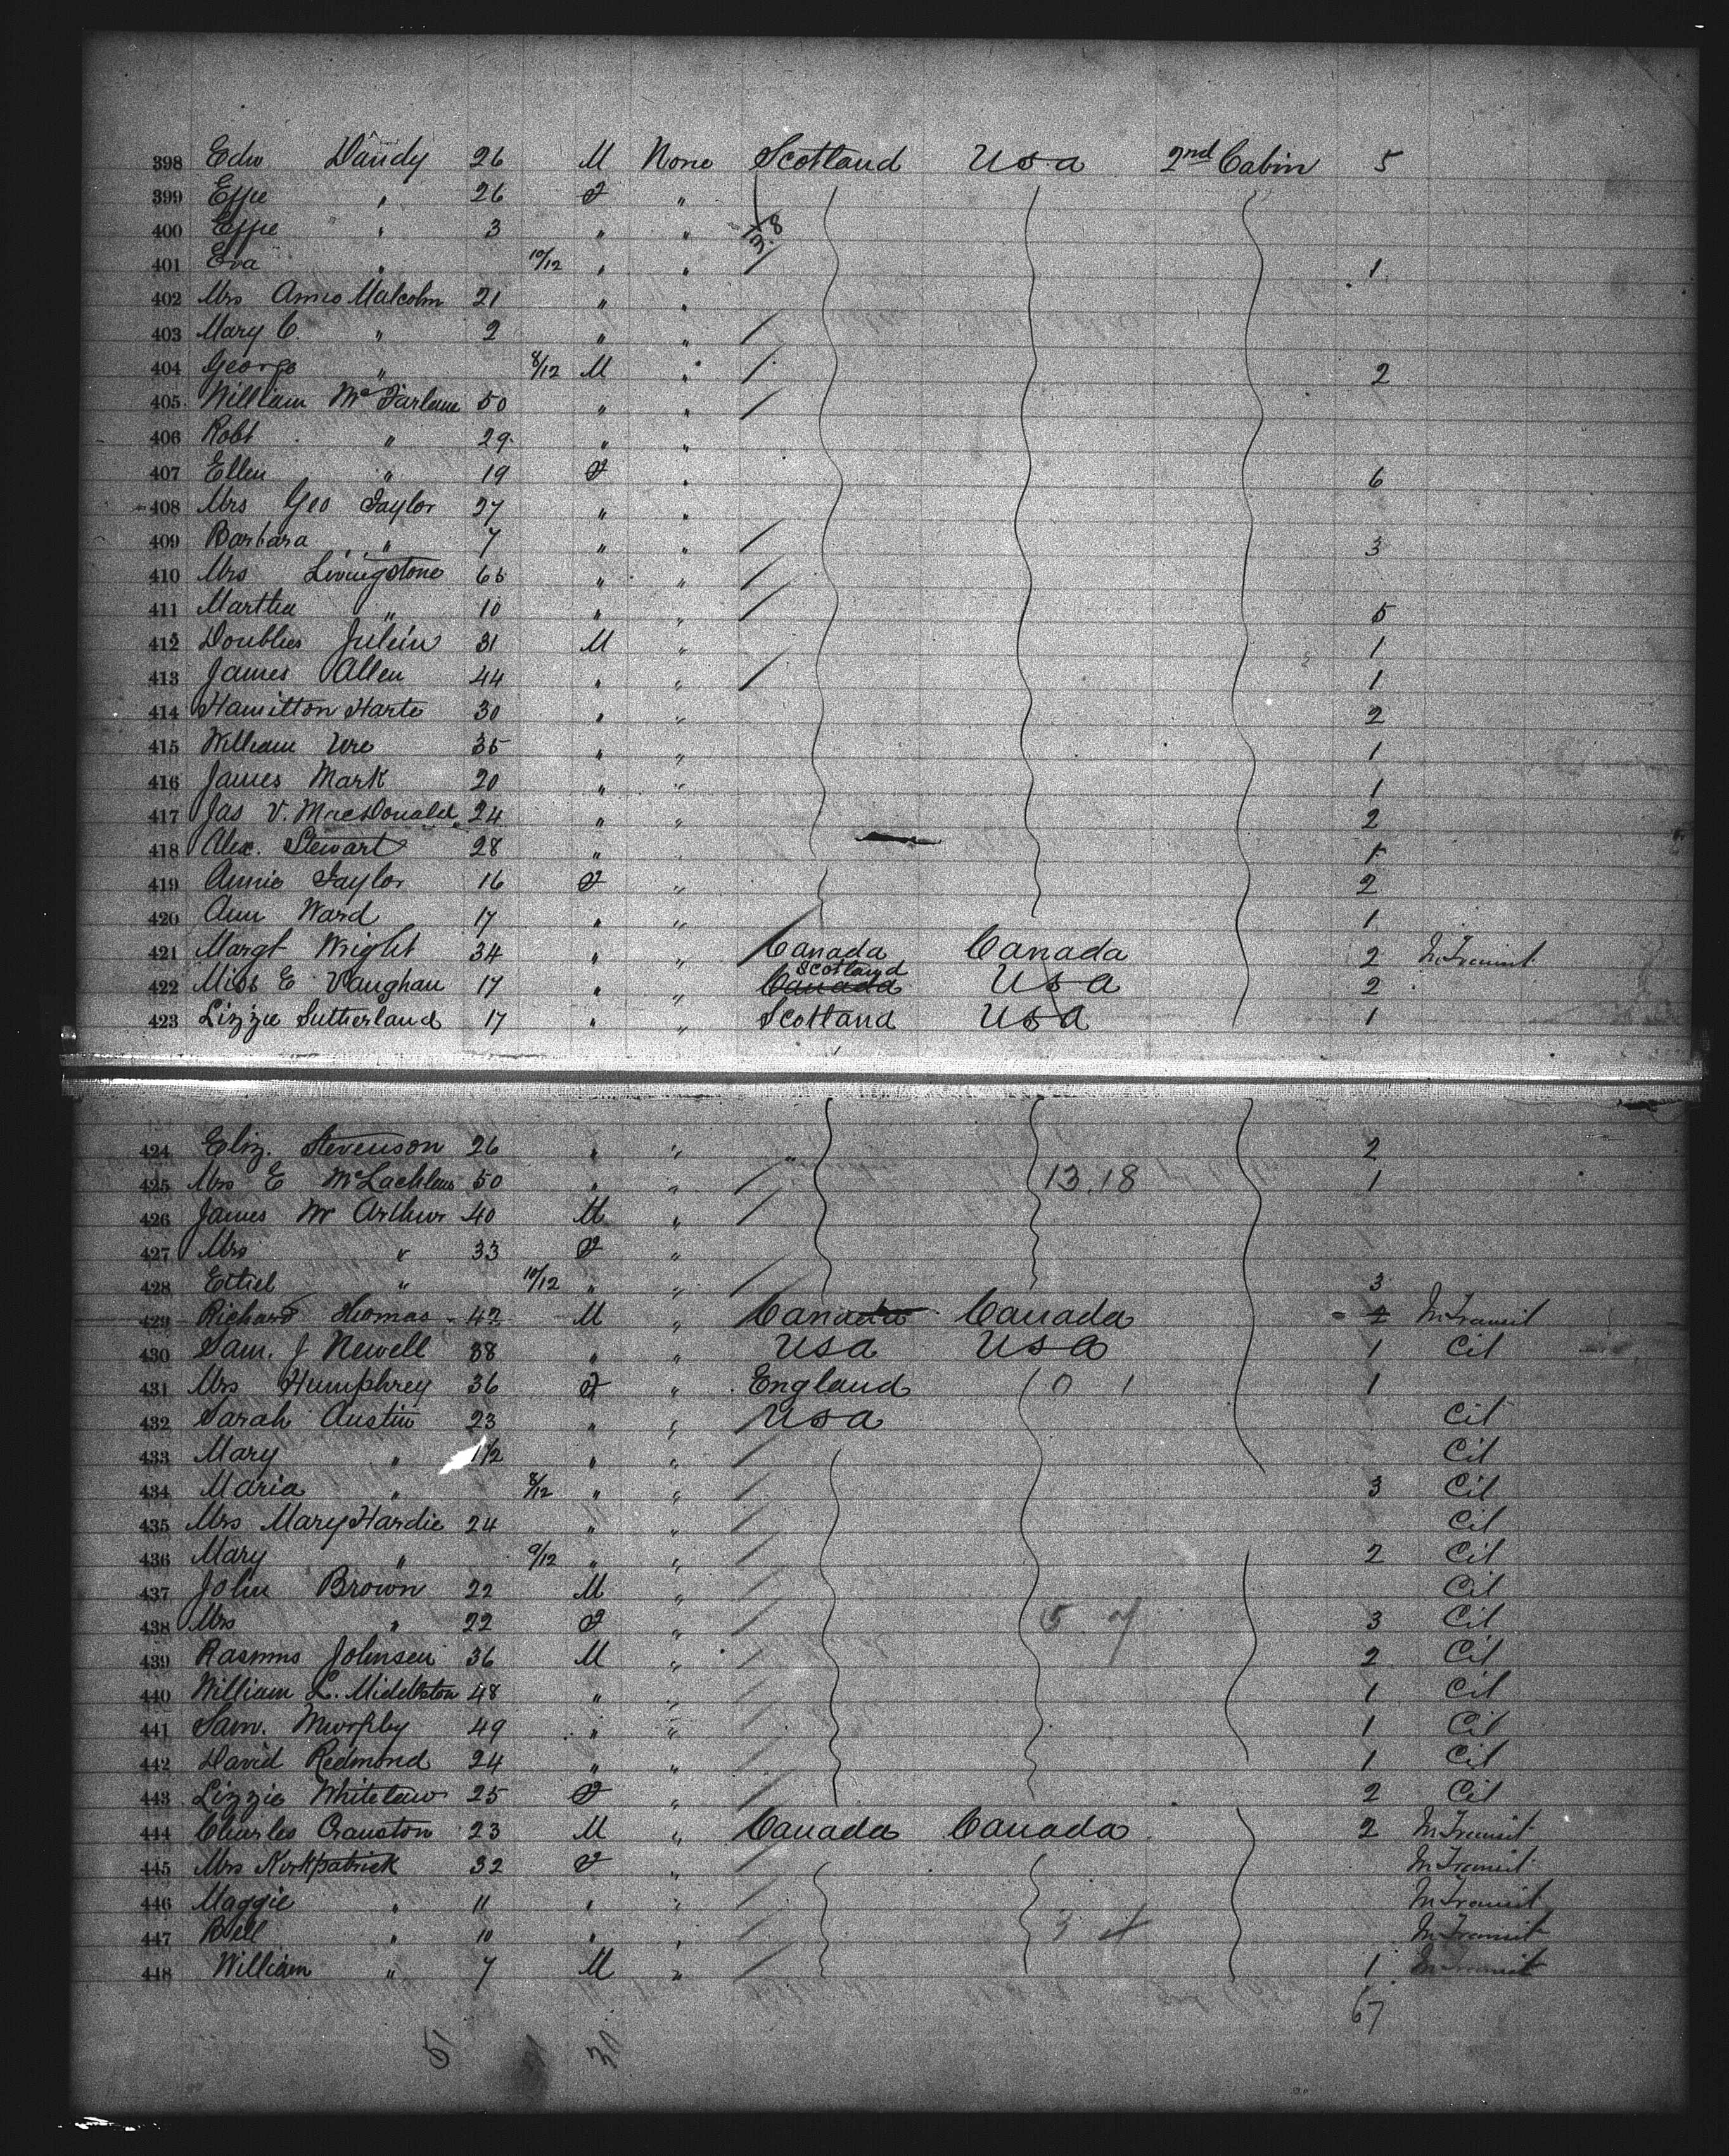 398 Edw Dandy 26 M None Scotland USA 2nd Cabin 5
399 Effie " 26 F "
400 Effie " 3 " " 13.8
401 Eva " 10/12 " " 1
402 Mrs Malcolm 21 " "
403 Mary C. " 2 " "
404 George " 8/12 M " 2
405 William McFarlane 50 " "
406 Robt " 29 " "
407 Ellen " 19 F " 6
408 Mrs Geo Taylor 27 " "
409 Barbara " 7 " " 3
410 Mrs Livingstone 65 " "
411 Martha " 10 " " 5
412 Julein 31 M " 1
413 James Allen 44 " " 1
414 Hamilton Harte 30 " " 2
415 William Ure 35 " " 1
416 James Mark 20 " " 1
417 Jas V. MacDonald 24 " " 2
418 Alex. Stewart 28 " " 1
419 Annie Taylor 16 F " 2
420 Ann Ward 17 " " 1
421 Margt Wright 34 " " Canada Canada 2 In Transit
422 Miss E Vaughan 17 " " Canada Scotland USA 2
423 Lizzie Sutherland 17 " " Scotland USA 1
424 Eliz. Stevenson 26 " " " 2
425 Mrs E McLachlan 50 " " 13.18 1
426 James McArthur 40 M "
427 Mrs " 33 F "
428 Ethel " 10/12 " " 3
429 Richard Thomas 42 M " Canada Canada In Transit
430 Sam. J Newell 38 " " USA USA 1 Cit
431 Mrs Humphrey 36 F " England 0 1 1
432 Sarah Austin 23 " " USA Cit
433 Mary " 1 1/2 " " Cit
434 Maria " 8/12 " " 3 Cit
435 Mrs Mary Hardie 24 " " Cit
436 Mary " 9/12 " " 2 Cit
437 John Brown 22 M " Cit
438 Mrs " 22 F " 5 3 Cit
439 Rasmus Johnsen 36 M " 2 Cit
440 William L. Middleton 48 " " 1 Cit
441 Sam. Murphy 49 " " 1 Cit
442 David Redmond 24 " " 1 Cit
443 Lizzie Whitelaw 25 F " 2 Cit
444 Charles Cranston 23 M " Canada Canada 2 In Transit
445 Mrs Kirkpatrick 32 F " In Transit
446 Maggie " 11 " " In Transit
447 Bell " 10 " " 3 In Transit
448 William " 7 M " 1 In Transit
67
51 30